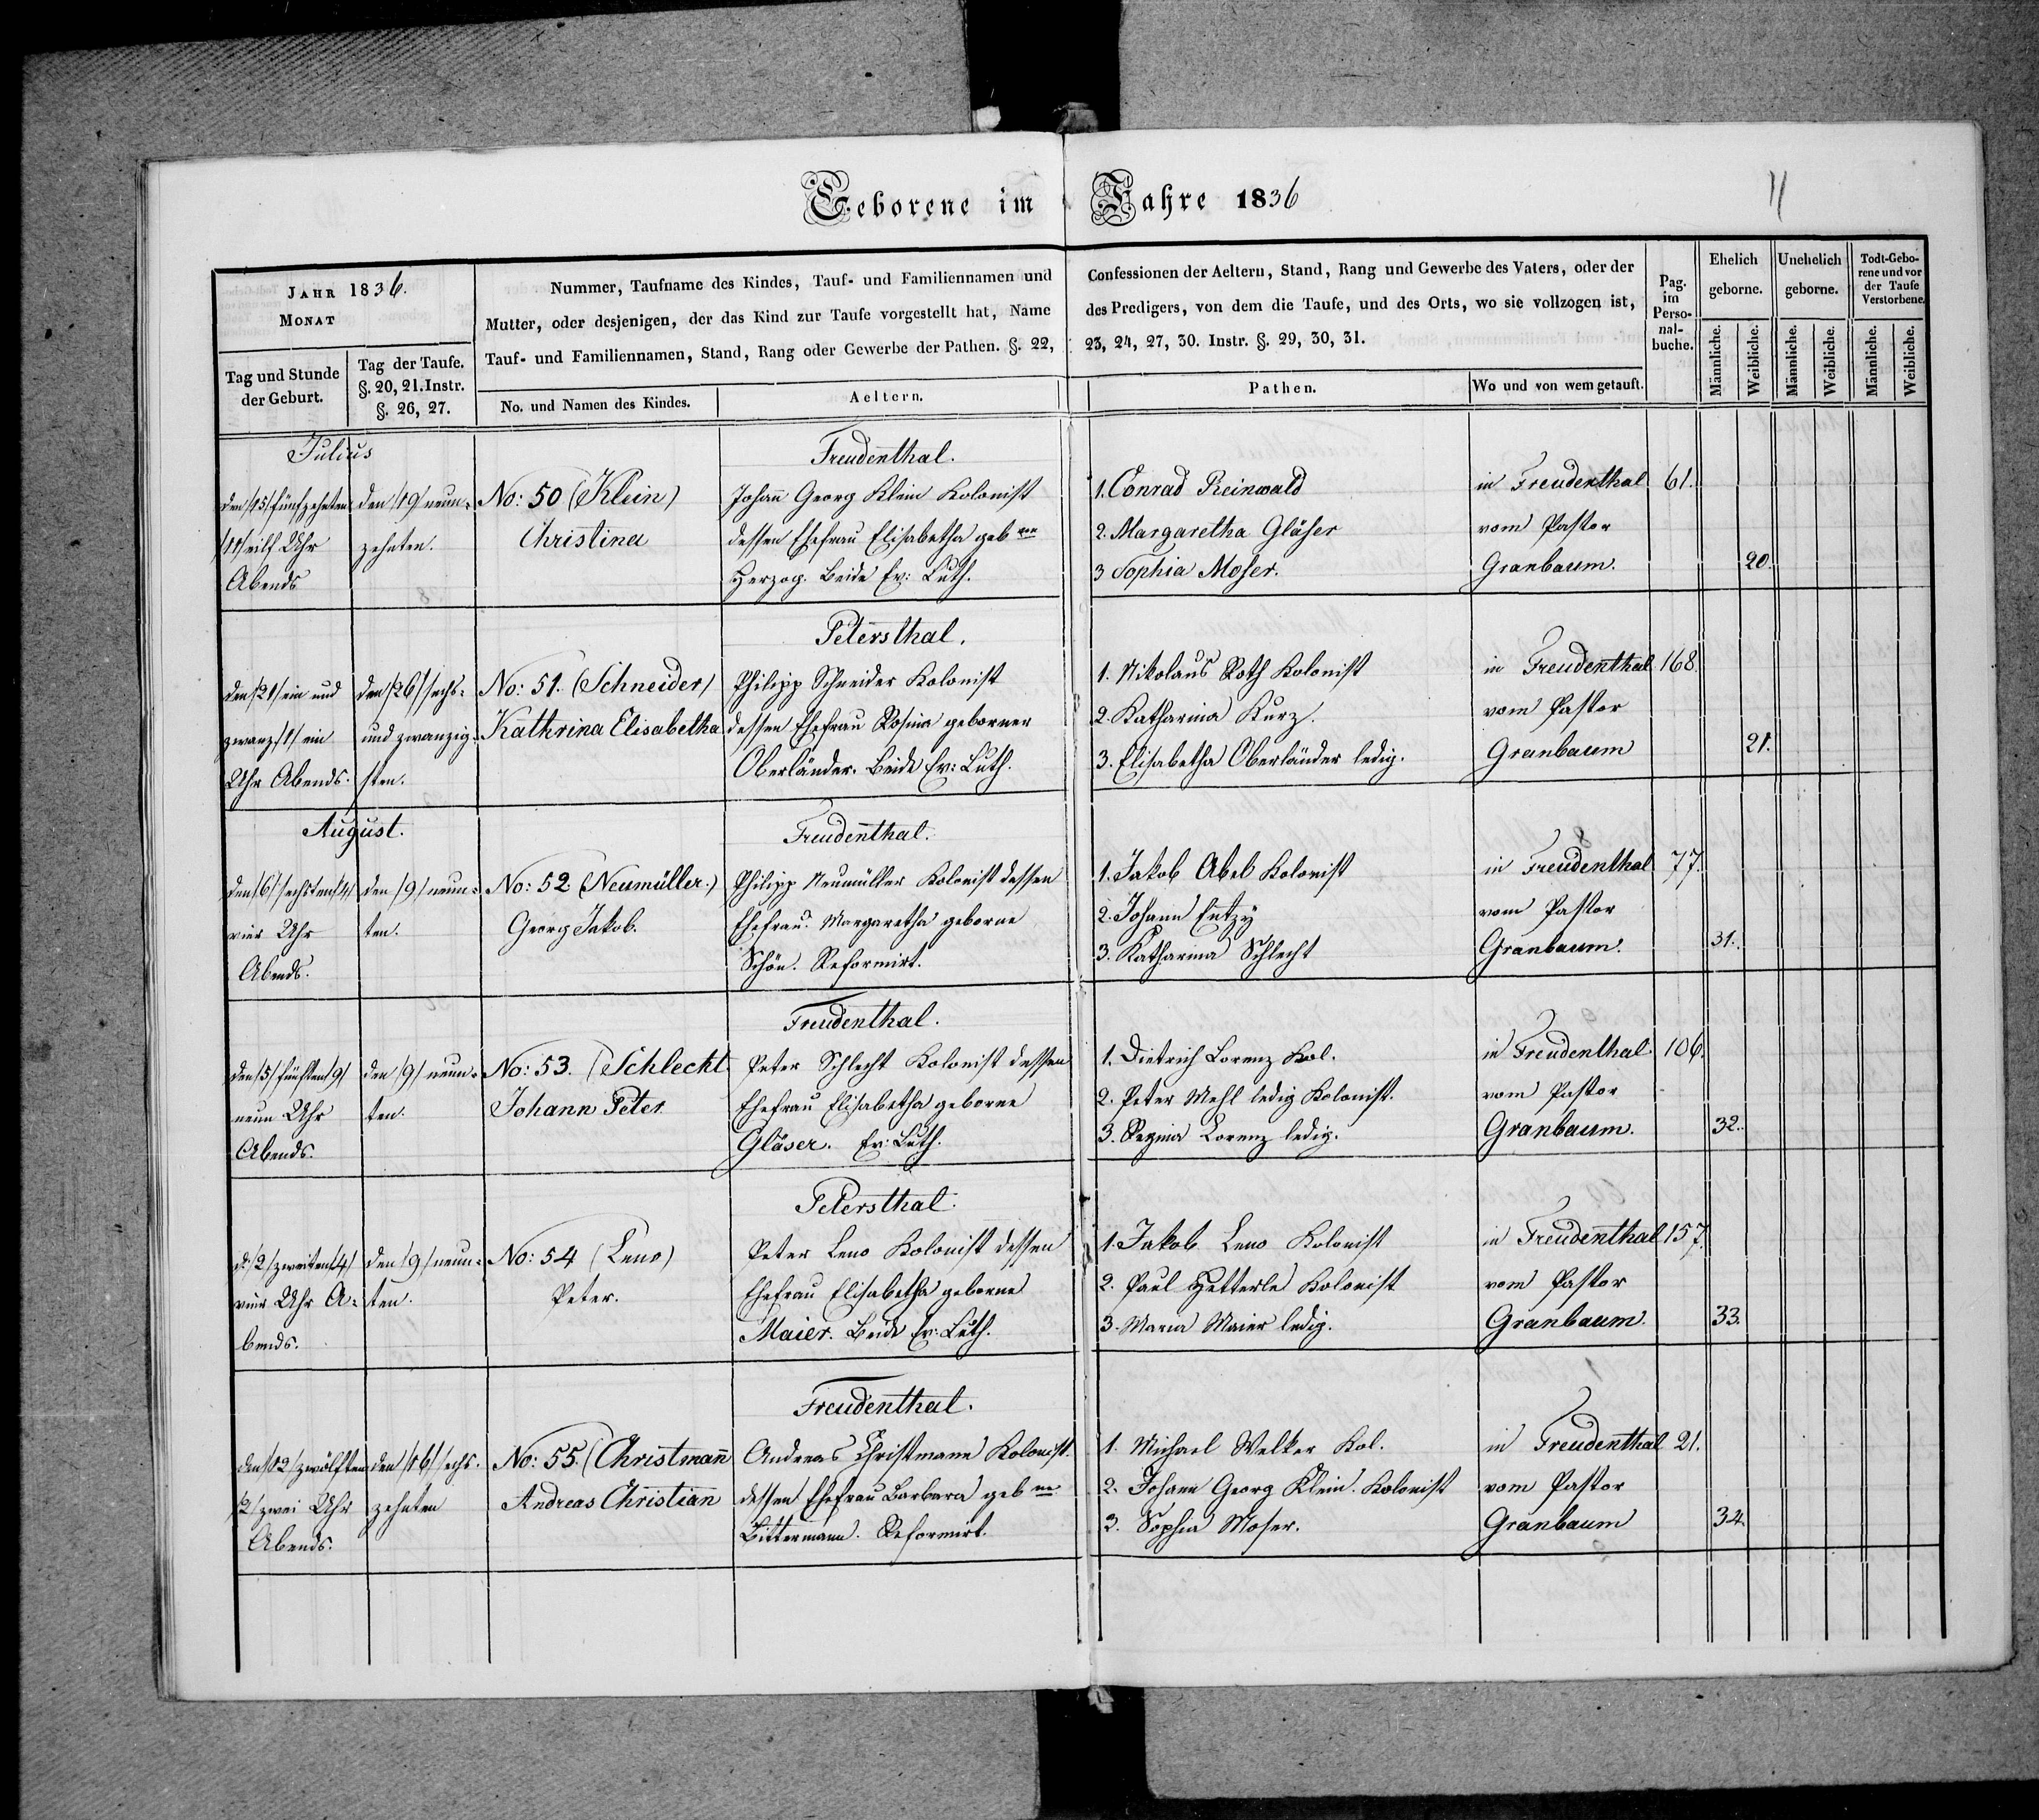 Geborene im Jahre 1836
11
JAHR 1836.
MONAT
Tag und Stunde der Geburt.
Tag der Taufe. §. 20, 21. Instr. §. 26, 27.
Nummer, Taufname des Kindes, Tauf- und Familiennamen und
Mutter, oder desjenigen, der das Kind zur Taufe vorgestellt hat, Name
Tauf- und Familiennamen, Stand, Rang oder Gewerbe der Pathen. §. 22,
No. und Namen des Kindes.
Aeltern.
Confessionen der Aeltern, Stand, Rang und Gewerbe des Vaters, oder der
des Predigers, von dem die Taufe, und des Orts, wo sie vollzogen ist,
23, 24, 27, 30. Instr. §. 29, 30, 31.
Pathen.
Wo und von wem getauft.
Pag. im Perso-nal-buche.
Ehelich geborne.
Unehelich geborne.
Todt-Gebo-rene und vor der Taufe Verstorbene.
Männliche. Weibliche. Männliche. Weibliche. Männliche. Weibliche.
Julius
Freudenthal.
den /15/ fünfzehnten den /19/ neun- No: 50 (Klein) Johann Georg Klein Kolonist 1. Conrad Reinwald in Freudenthal 61.
/11/ eilf Uhr zehnten. Christina dessen Ehefrau Elisabetha geb ne 2. Margaretha Gläser vom Pastor
Abends Herzog. Beide Ev: Luth. 3 Sophia Moser. Granbaum. 20.
Petersthal.
den /21/ ein und den /26/ sechs- No: 51. (Schneider) Philipp Schneider Kolonist 1. Nikolaus Roth Kolonist in Freudenthal 168.
zwanz /1/ ein und zwanzig- Kathrina Elisabetha dessen Ehefrau Rosina geborner 2. Katharina Kurz. vom Pastor
Uhr Abends. sten. Oberländer. Beide Ev: Luth. 3. Elisabetha Oberländer ledig. Granbaum 21.
August.
Freudenthal.
den /6/ sechsten /4/ den /9/ neun- No: 52 (Neumüller.) Philipp Neumüller Kolonist dessen 1. Jakob Abel Kolonist in Freudenthal 77.
vier Uhr ten. Georg Jakob. Ehefrau. Margaretha geborne 2. Johann Entzy vom Pastor
Abends. Schön. Reformirt. 3. Katharina Schlecht Granbaum. 31.
Freudenthal.
den /5/ fünften /9/ den /9/ neun- No: 53. (Schlecht Peter Schlecht Kolonist dessen 1. Dietrich Lorenz Kol. in Freudenthal 106.
neun Uhr ten. Johann Peter Ehefrau Elisabetha geborne 2. Peter Mehl ledig Kolonist. vom Pastor
Abends. Gläser. Ev: Luth. 3. Regina Lorenz ledig. Granbaum. 32.
Petersthal.
d. /2/ zweiten /4/ den /9/ neun- No: 54 (Leno) Peter Leno Kolonist dessen 1. Jakob Leno Kolonist in Freudenthal 157.
vier Uhr A- ten. Peter. Ehefrau Elisabetha geborne 2. Paul Hetterle Kolonist vom Pastor
bends. Maier. Beide Ev: Luth. 3. Maria Maier ledig. Granbaum. 33.
Freudenthal.
den /12/ zwölften den /16/ sechs- No: 55. (Christmann Andreas Christmann Kolonist. 1. Michael Welker Kol. in Freudenthal 21.
/2/ zwei Uhr zehnten Andreas Christian dessen Ehefrau Barbara geb ne 2. Johann Georg Klein. Kolonist vom Pastor
Abends. Bittermann. Reformirt. 3. Sophia Moser. Granbaum 34.